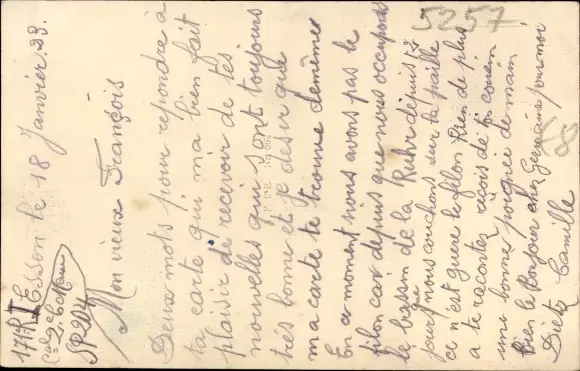 Essen le 18 Janvier 23.
Mon vieux François
Deux mots pour répondre à
ta carte qui m'a bien fait
plaisir de recevoir de tes
nouvelles qui sont toujours
très bonne et je désir que
ma carte te trouve de mêmes
En ce moment nous avons pas le
filon car depuis que nous occupons
le bassin de la Ruhr depuis
jours que nous couchons sur la paille
ce n'est guère le filon Rien de plus
a te racontez reçois de ton cousin
une bonne poignée de main
bien le Bonjour chez Germaine pour moi
Dietz Camille
17
SP 204
5257